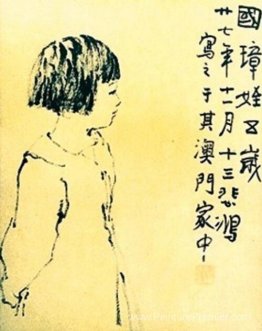 國璋姪五歲
廿七年十一月十三悲鴻
寫之于其澳門家中